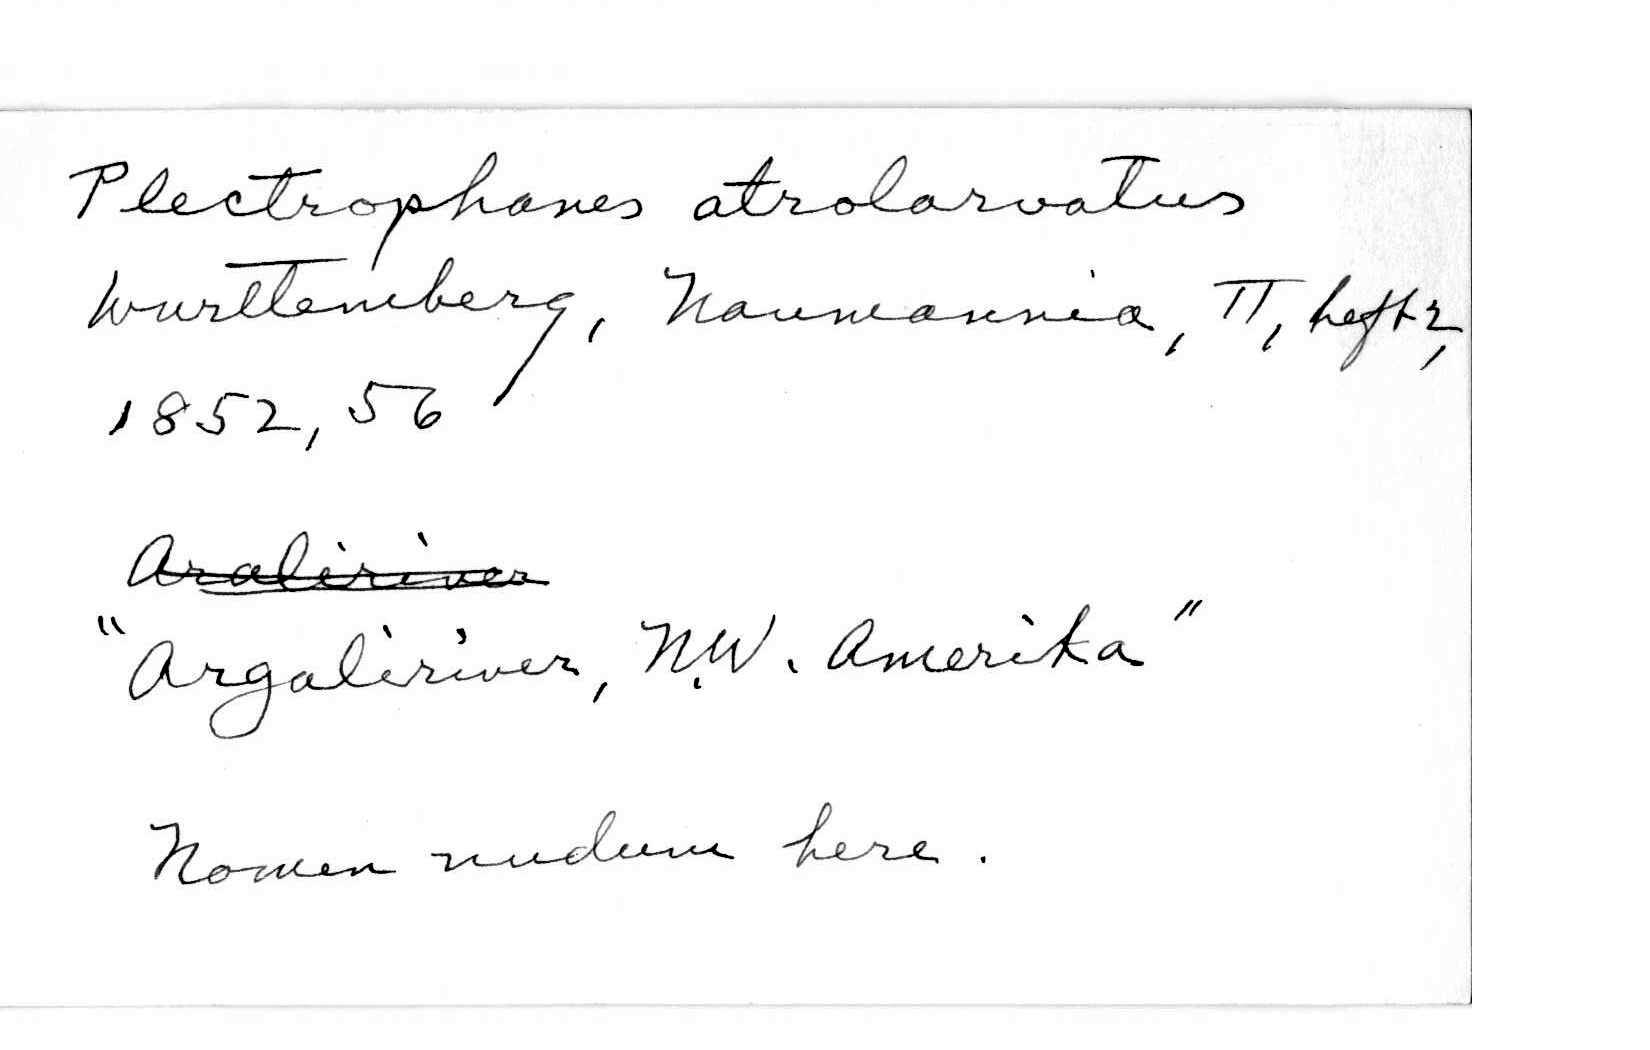 Plectrophanes atrolarvatus
Wurttemberg, Naumannia, II, heft 2,
1852, 56
Araliriver
"Argaliriver, N.W. Amerika"
Nomen nudum here.